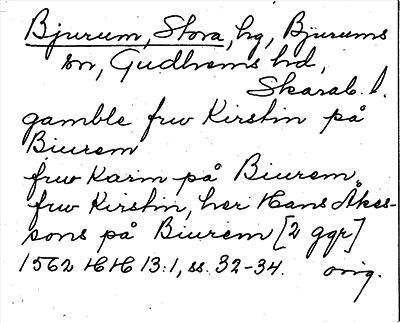 Bjurum, Stora, hg, Bjurums
sn, Gudhems hd,
Skarab. l.
gamble frw Kirstin på
Biurem
frw Karin på Biurem
frw Kirstin, her Hans Åkes-
sons på Biurem [2 ggr]
1562 HH 13:1, ss. 32-34. orig.